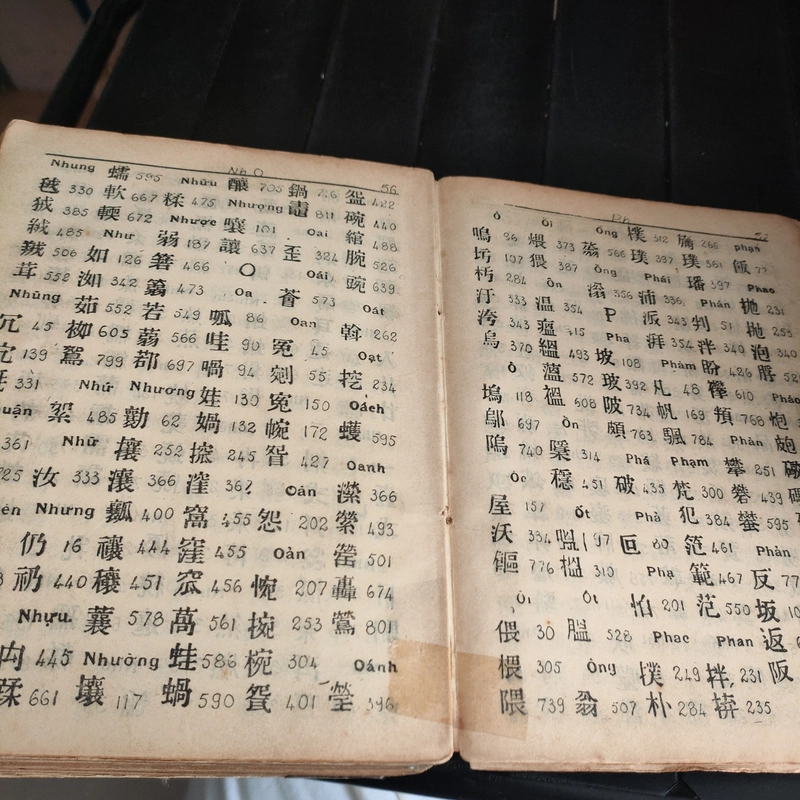 Nh O
56
Nhung
毧 330
狨 385
絨 485
羢 506
茸 552
Nhũng
冗 45
宂 139
331
361
蠕 595
軟 667
輭 672
Như
如 126
洳 342
茹 552
袽 605
鴽 799
Nhứ
絮 485
Nhữ
汝 333
Nhưng
仍 16
礽 440
Nhựu.
肉 445
蹂 661
Nhữu
糅 475
Nhược
弱 187
箬 466
篛 473
若 549
蒻 566
鄀 697
Nhương
勷 62
攘 252
瀼 366
瓤 400
禳 444
穰 451
蘘 578
Nhưỡng
壤 117
釀 705
Nhượng
嚷 101
讓 637
O
Oa
呱 86
哇 90
喎 94
娃 130
媧 132
245
漥 362
窩 455
窪 455
窊 456
萵 561
蛙 586
蝸 590
鍋 716
鼃 811
Oai
歪 324
Oải
573
Oan
冤 45
剜 55
寃 150
帵 172
眢 427
Oán
怨 202
Oản
惋 207
捥 253
椀 304
401
盌 422
碗 440
綰 488
腕 526
豌 639
Oát
斡 262
Oạt
挖 234
Oách
蠖 595
Oanh
濴 366
縈 493
罃 501
轟 674
鶯 801
Oánh
瑩 396
Ph
57
Ô
嗚 96
圬 107
杇 284
汙 333
洿 343
烏 370
Ổ
塢 118
鄔 697
隖 740
Ốc
屋 157
沃 334
776
Ôi
偎 30
椳 305
隈 739
Ổi
煨 373
猥 387
Ôn
温 354
瘟 415
縕 493
薀 572
褞 608
Ổn
檃 314
穩 451
Ốt
嗢 97
榲 310
Ột
膃 528
Ông
翁 507
Ổng
蓊 566
Ổng
滃 356
P
Pha
坡 108
玻 392
陂 734
頗 763
Phá
破 435
Phả
叵 80
Phạ
怕 201
Phac
撲 249
朴 284
樸 312
璞 397
Phái
沛 336
派 343
湃 354
Phàm
凡 48
帆 169
颿 784
Phạm
梵 300
犯 384
笵 461
範 467
范 550
Phan
拌 231
拚 235
旛 266
561
璠 397
Phán
判 51
泮 340
盼 426
襻 610
頖 768
Phàn
攀 251
礬 439
595
Phản
反 77
坂
返
阪
phạn
飯 77
Phao
抛 231
泡 340
脬
Pháo
炮